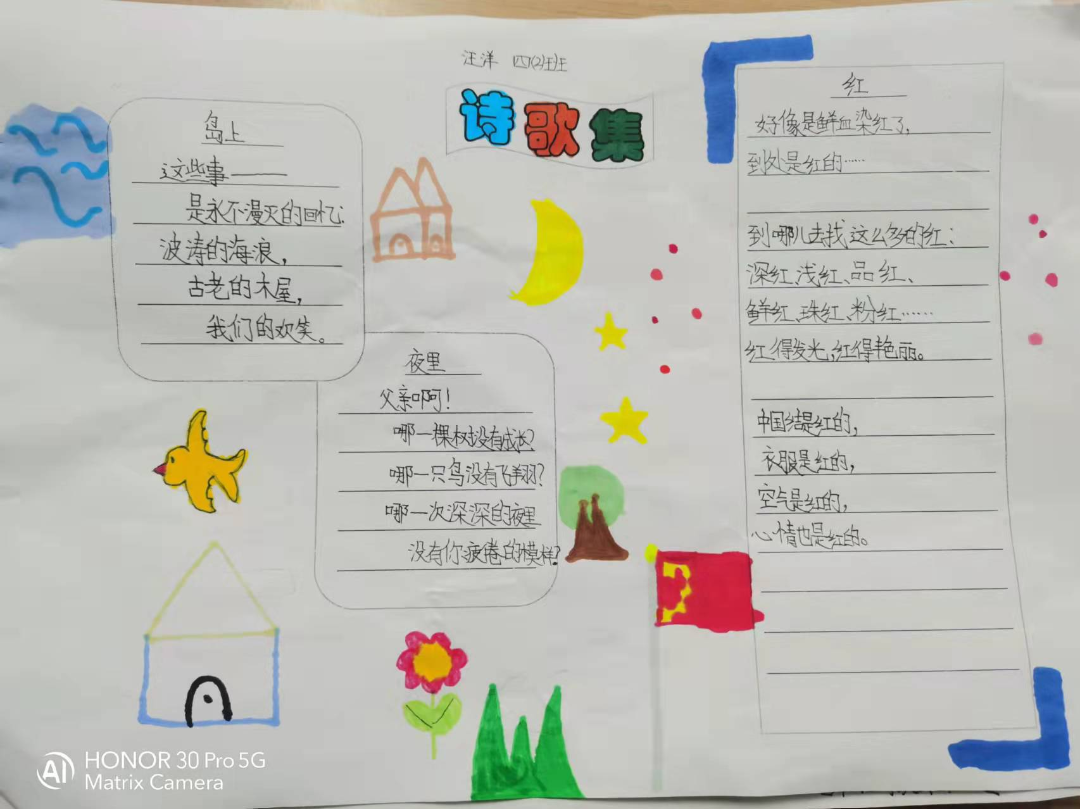 汪洋 四(2)班
诗歌集
岛上
这些事——
是永不漫灭的回忆:
波涛的海浪,
古老的木屋,
我们的欢笑。
夜里
父亲啊!
哪一棵树没有成长?
哪一只鸟没有飞翔?
哪一次深深的夜里
没有你疲倦的模样?
红
好像是鲜血染红了,
到处是红的……
到哪儿去找,这么多的红:
深红、浅红、品红、
鲜红、珠红、粉红……
红得发光,红得艳丽。
中国结是红的,
衣服是红的,
空气是红的,
心情也是红的。
AI HONOR 30 Pro 5G
Matrix Camera